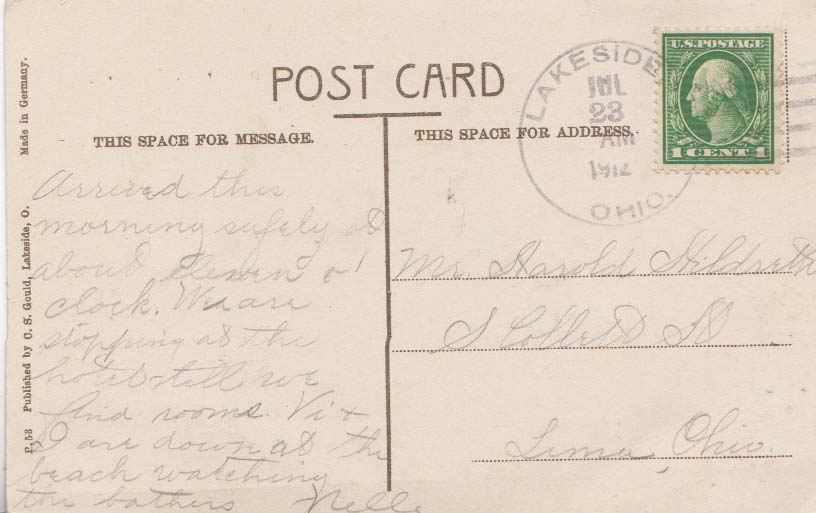 POST CARD
THIS SPACE FOR MESSAGE.
THIS SPACE FOR ADDRESS.
Made in Germany.
P. 53 Published by C. S. Gould, Lakeside, O.
LAKESIDE
JUL
23
AM
1912
OHIO.
U.S. POSTAGE
1 CENT 1
Arrived this
morning safely at
about eleven o'
clock. We are
stopping at the
hotel still we
find rooms. Vi +
I are down at the
beach watching
the bathers Nelle
Mr. Harold Hildreth
S Collett St
Lima, Ohio.